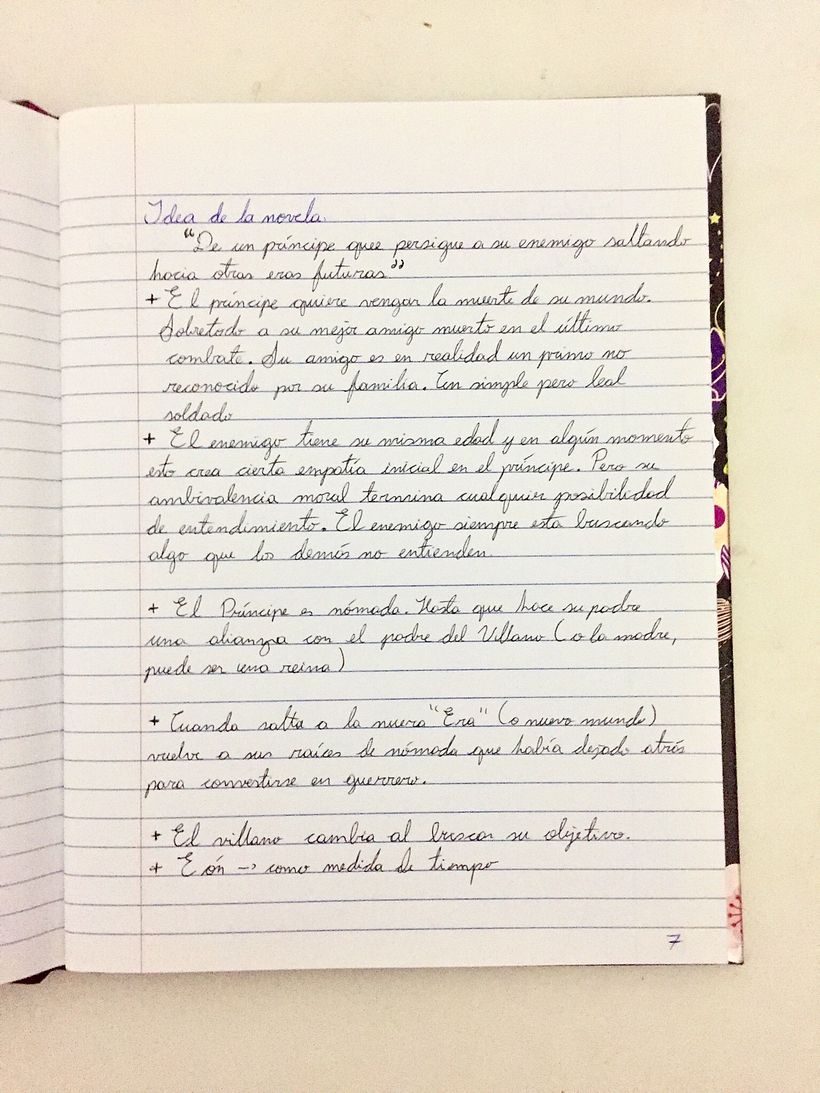 Idea de la novela.
"De un príncipe quee persigue a su enemigo saltando
hacia otras eras futuras"
+ El príncipe quiere vengar la muerte de su mundo.
Sobretodo a su mejor amigo muerto en el último
combate. Su amigo es en realidad un primo no
reconocido por su familia. Un simple pero leal
soldado
+ El enemigo tiene su misma edad y en algún momento
esto crea cierta empatía inicial en el príncipe. Pero su
ambivalencia moral termina cualquier posibilidad
de entendimiento. El enemigo siempre esta buscando
algo que los demás no entienden.
+ El Príncipe es nómada. Hasta que hace su padre
una alianza con el padre del Villano (o la madre,
puede ser una reina)
+ Cuando salta a la nueva "Era" (o nuevo mundo)
vuelve a sus raíces de nómada que había dejado atrás
para convertirse en guerrero.
+ El villano cambia al buscar su objetivo.
+ Eón -> como medida de tiempo
7